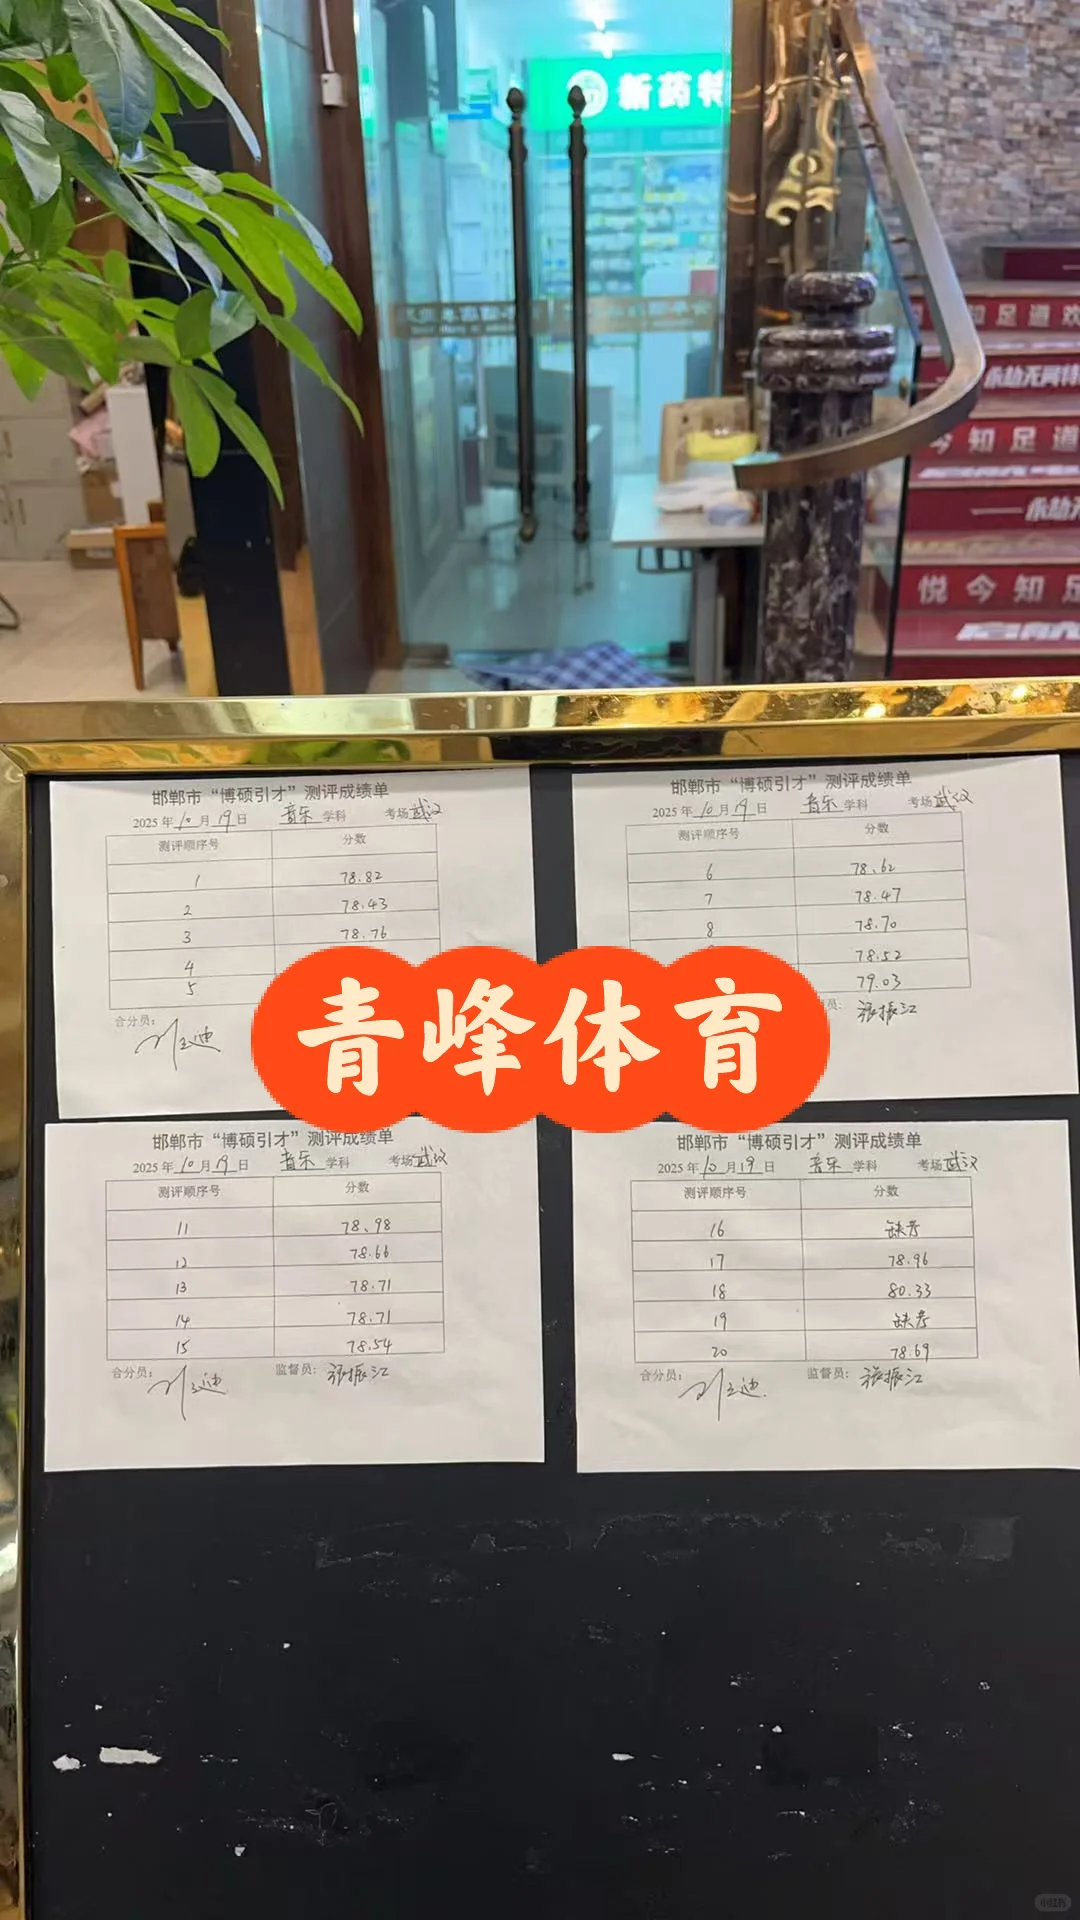 新药特
知足道欢
永劫无间特
今知足道
永劫无
悦今知足
邯郸市“博硕引才”测评成绩单
2025年10月19日 音乐学科 考场武汉
测评顺序号 分数
1 78.82
2 78.43
3 78.76
4
5
合分员:
邯郸市“博硕引才”测评成绩单
2025年10月19日 音乐学科 考场武汉
测评顺序号 分数
6 78.62
7 78.47
8 78.70
78.52
79.03
员: 张振江
青峰体育
邯郸市“博硕引才”测评成绩单
2025年10月19日 音乐学科 考场武汉
测评顺序号 分数
11 78.98
12 78.66
13 78.71
14 78.71
15 78.54
合分员: 监督员: 张振江
邯郸市“博硕引才”测评成绩单
2025年10月19日 音乐学科 考场武汉
测评顺序号 分数
16 缺考
17 78.96
18 80.33
19 缺考
20 78.69
合分员: 监督员: 张振江
小红书